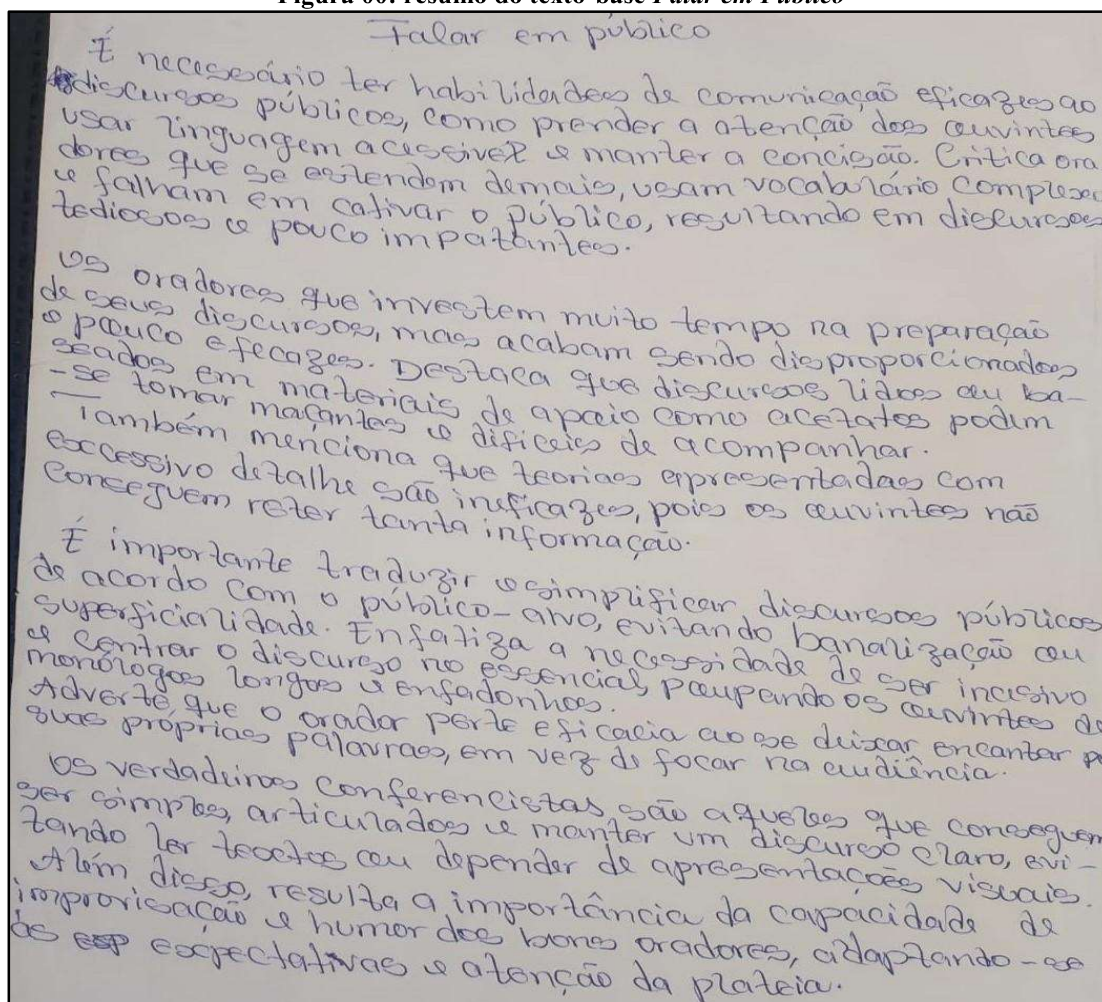 Figura 06: resumo do texto-base Falar em Público
Falar em público
É necessário ter habilidades de comunicação eficazes ao
discursos públicos, como prender a atenção dos ouvintes
usar linguagem acessivel e manter a concisão. Critica ora
dores que se estendem demais, usam vocabulário complexo
e falham em cativar o público, resultando em discursos
tediosos e pouco impatantes.
Os oradores que investem muito tempo na preparação
de seus discursos, mas acabam sendo disproporcionados
o pouco efecazes. Destaca que discursos lidos ou ba-
seados em materiais de apoio como acetatos podim
-se tomar maçantes e dificeis de acompanhar.
Também menciona que teorias apresentadas com
exccessivo detalhe são ineficazes, pois os ouvintes não
conseguem reter tanta informação.
É importante traduzir e simplificar discursos públicos
de acordo com o público-alvo, evitando banalização ou
superficialidade. Enfatiza a necessidade de ser incisivo
e centrar o discurso no essencial, poupando os ouvintes de
monólogos longos e enfadonhos.
Adverte que o orador perte eficacia ao se deixar encantar p
suas próprias palavras, em vez de focar na audiência.
Os verdadeiros conferencistas são aqueles que conseguem
ser simples, articulados e manter um discurso claro, evi-
tando ler textos ou depender de apresentações visuais.
Além disso, resulta a importância da capacidade de
improvisação e humor dos bons oradores, adaptando-se
às esp expectativas e atenção da plateia.